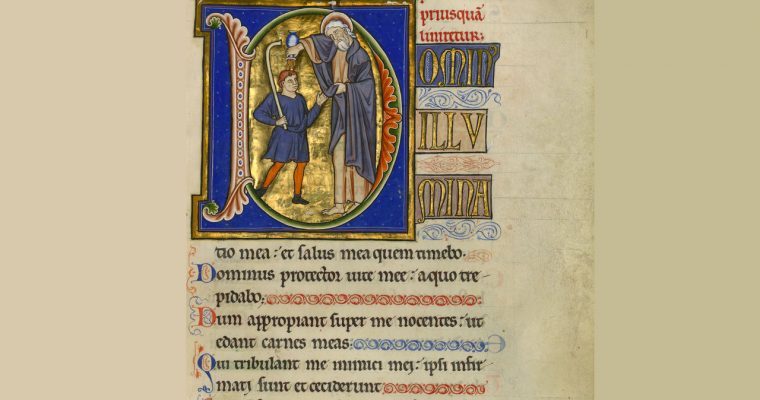 priusquā
liniretur:
D
OMIN
ILLV
MINA
tio mea: et salus mea quem timebo.
Dominus protector vite mee: a quo tre-
pidabo:
Dum appropiant super me nocentes: ut
edant carnes meas:
Qui tribulant me inimici mei: ipsi infir-
mati sunt et ceciderunt